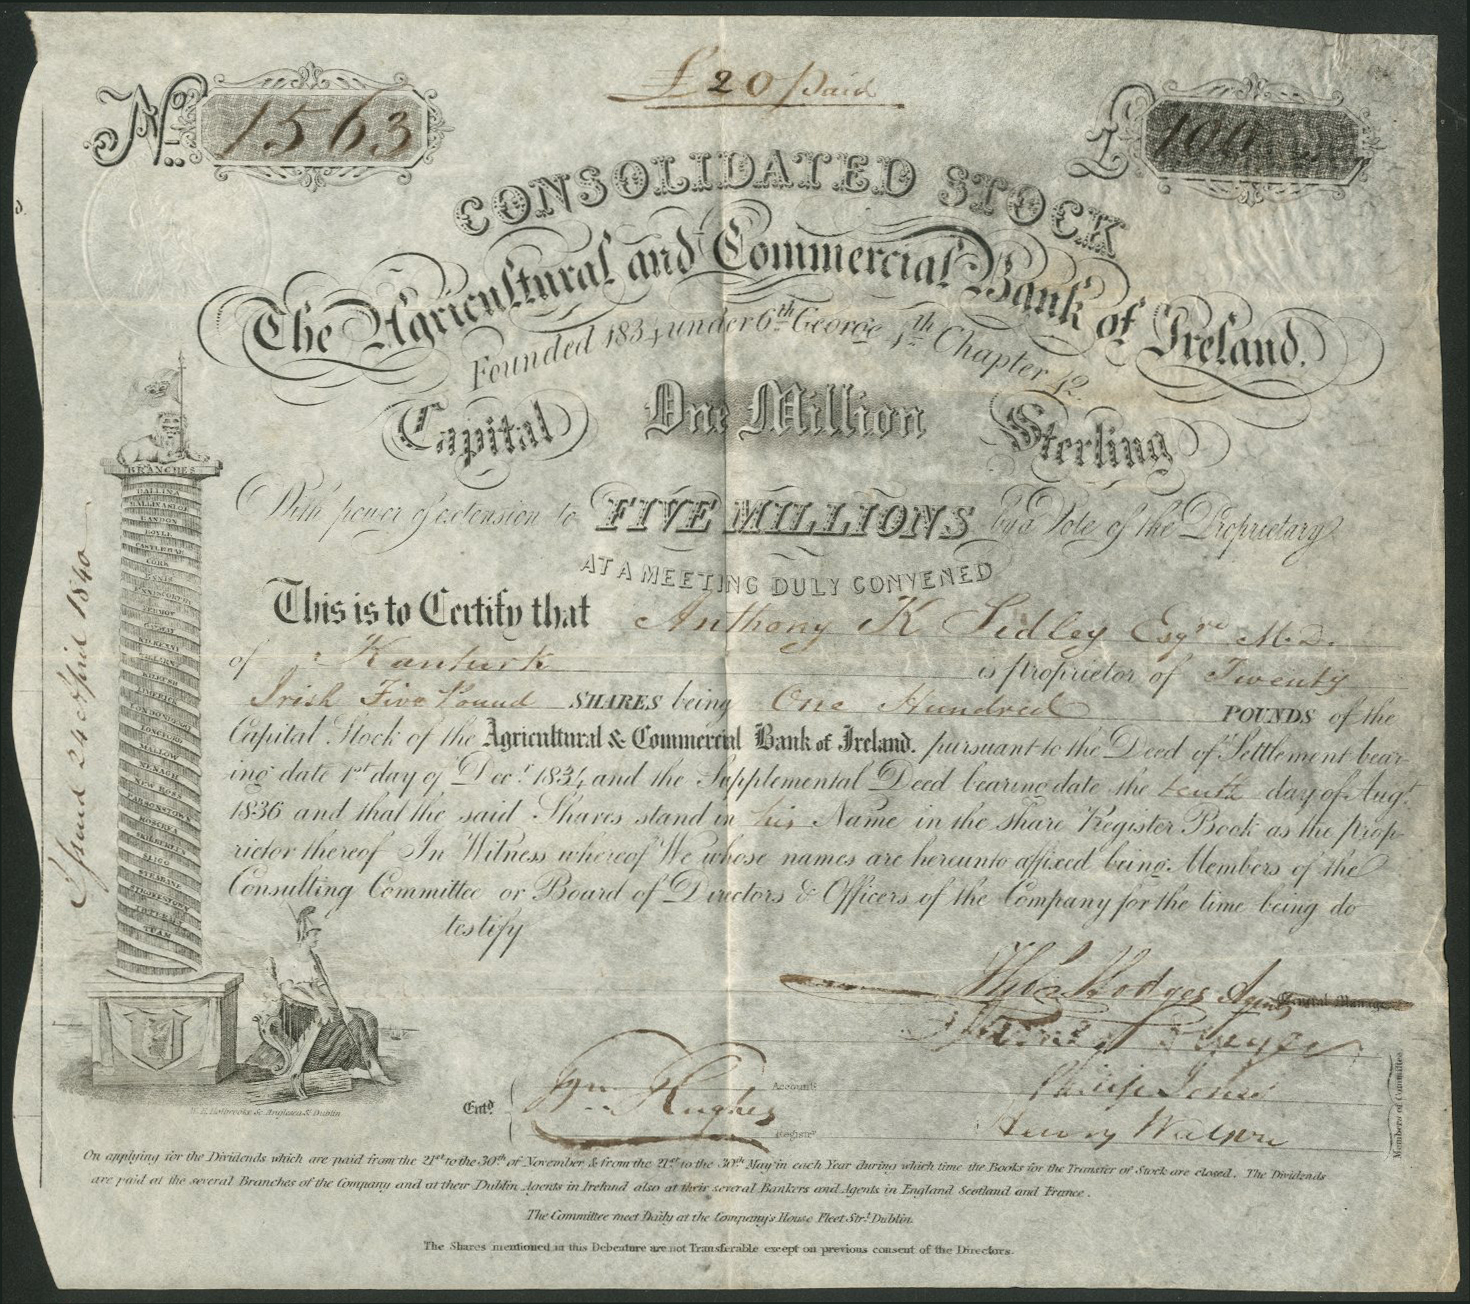 £20 paid
No. 1563
£ 100
CONSOLIDATED STOCK
The Agricultural and Commercial Bank of Ireland.
Founded 1834 under 6th George 4th Chapter 42
Capital One Million Sterling
With power of extension to FIVE MILLIONS by a Vote of the Proprietary
AT A MEETING DULY CONVENED
This is to Certify that Anthony K Sidley Esqre M.D.
of Kanturk is proprietor of Twenty
Irish Five Pound SHARES being One Hundred POUNDS of the
Capital Stock of the Agricultural & Commercial Bank of Ireland. pursuant to the Deed of Settlement bear-
ing date 1st day of Decr. 1834 and the Supplemental Deed bearing date the tenth day of Augt.
1836 and that the said Shares stand in his Name in the Share Register Book as the prop-
rietor thereof In Witness whereof We whose names are hereunto affixed being Members of the
Consulting Committee or Board of Directors & Officers of the Company for the time being do
testify
Issued 24 April 1840
BRANCHES
BALLINA
BALLINASLOE
BANDON
BOYLE
CASTLEBAR
CORK
ENNIS
ENNISCORTHY
FERMOY
GALWAY
KILKENNY
KILRUSH
LIMERICK
LONDONDERRY
LONGFORD
MALLOW
NENAGH
NEW ROSS
PARSONSTOWN
ROSCREA
SKIBBEREEN
SLIGO
STRABANE
TUAM
Hodges Agent General Manager
Philip Jones
Henry Watson
Members of Committee
Entd. Wm. Hughes
Accountt.
Registrr.
W. E. Holbrooke Sc. Anglesea St. Dublin
On applying for the Dividends which are paid from the 21st to the 30th of November, & from the 21st to the 30th May in each Year during which time the Books for the Transfer of Stock are closed. The Dividends
are paid at the several Branches of the Company and at their Dublin Agents in Ireland also at their several Bankers and Agents in England Scotland and France.
The Committee meet Daily at the Company's House Fleet Strt. Dublin.
The Shares mentioned in this Debenture are not Transferable except on previous consent of the Directors.